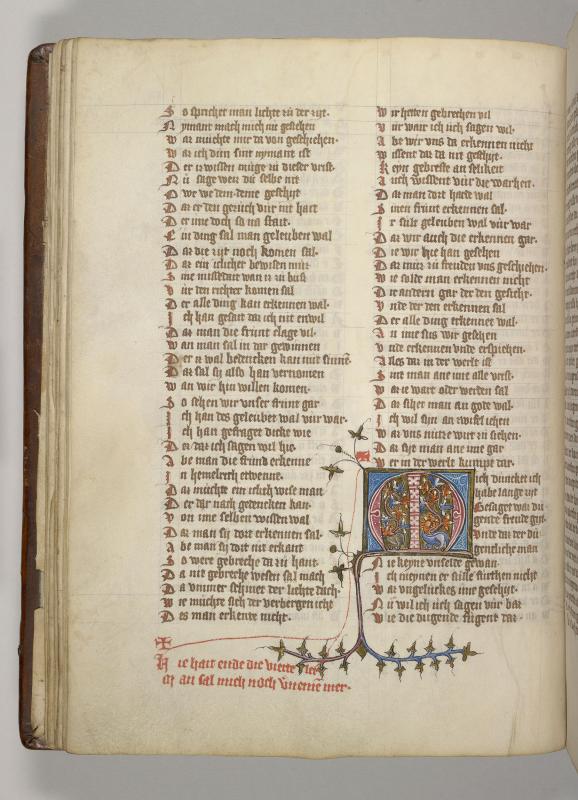 So sprichet man lichte zu der zyt.
Nymant mach mich nit gesehen
war mochte mir da von geschehen.
war ich dim sint nymant ist
Der iz wissen muge zu dieser vrist.
Nu sage wer du selbe nit
Owe we dem deme geschyt
Dar er den geruch vur nit hart
Der ime doch so na stait.
Ein ding sal man geleuben wal
Dar die zyt noch komen sal.
Dar ein iclicher bewisen muz
Sine missedait war zu buz
Vur den richter komen sal
Der alle ding kan erkennen wal.
Ich han gesait dar ich nit enwil
Dar man die frunt clage vil.
wan man sal in dar gewinnen
Der iz wal bedencken kan mit sinne.
Dar sal sy also han vernomen
wan wir hin willen komen.
So sehen wir vnser frunt gar
Ich han des geleubet wal vur war.
Ich han gefraget dicke wie
Der dar ich sagen wil hie.
Abe man die frund erkenne
In hemelrich etwenne.
Dar mochte ein iclich wise man
Der dar nach gedencken kan.
Von ime selben wissen wal
Dar man sy dort erkennen sal.
Abe man sy dort nit erkant
So were gebreche da zu hant.
Da nit gebreche wesen sal mach
Da vmmer schinet der lichte dach
wie mochte sich der verbergen icht
Des man erkente nicht.
Hie hait ende die vierte ler
ar an sal mich noch vneme mer.
Wir hetten gebrechen vil
Vur wair ich uch sagen wil.
Abe wir vns da erkennen nicht
wissent dar da nit geschyt.
Keyn gebreste an selikeit
Auch wissent vur die warheit.
Dar man dort harde wal
Sinen frunt erkennen sal.
Ir sult geleuben wal vur war
Dar wir auch die erkennen gar.
Die wir hie han gesehen
Dar muz zu freuden vns geschiehen.
wie solde man erkennen nicht
Die andern gar der den gesicht.
Vnde der den erkennen sal
Der alle ding erkennet wal.
An ime sus wir gesehen
Vnde erkennen vnde erspehen.
Alles dar in der werlt ist
Siht man ane ime alle vrist.
war ie ware oder werden sal
Dar siher man an gode wal.
Ich wil sin an zwifel iehen
war vns nutze wirt zu sehen.
Dar syt man ane ime gar
wer in der werlt kumpt dar.
Mich duncket ich
habe lange zyt
Gesaget war du
gende freude gyt.
Vnde dar der du
gentliche man
Nie keyne vnselde gewan.
Ich meynen er sulle furthen nicht
war vngeluckes ime geschyt.
Nu wil ich uch sagen vur bar
wie die dugende fugent dar.